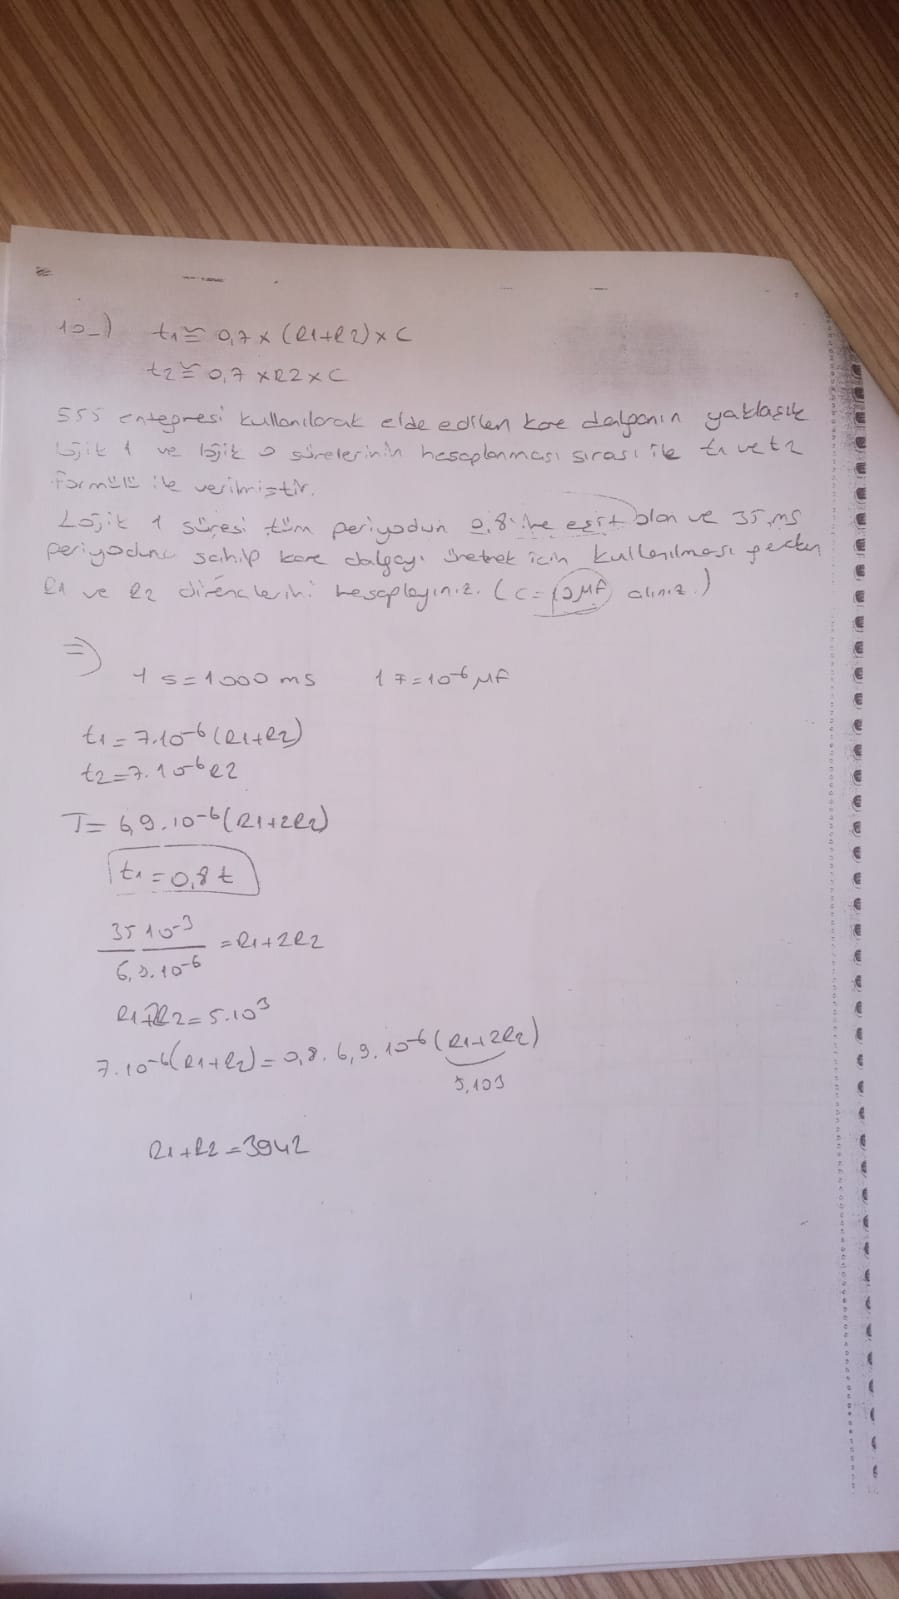 10-) t1≅ 0,7 x (R1+R2) x C
t2≅ 0,7 x R2 x C
555 entegresi kullanılarak elde edilen kare dalganın yaklaşık
Lojik 1 ve lojik 0 sürelerinin hesaplanması sırası ile t1 ve t2
formülü ile verilmiştir.
Lojik 1 süresi tüm periyodun 0,8'ine eşit olan ve 35 ms
periyoduna sahip kare dalgayı üretmek için kullanılması gereken
R1 ve R2 dirençlerini hesaplayınız. (C=10µF alınız.)
⇒
1 s = 1000 ms 1 F = 10⁻⁶ µF
t1 = 7.10⁻⁶ (R1+R2)
t2 = 7.10⁻⁶ R2
T = 6,9.10⁻⁶ (R1+2R2)
t1 = 0,8 t
35 10⁻³ / 6,9.10⁻⁶ = R1+2R2
R1+2R2 = 5.10³
7.10⁻⁶ (R1+R2) = 0,8. 6,9. 10⁻⁶ (R1+2R2)
5,103
R1+R2 = 3942